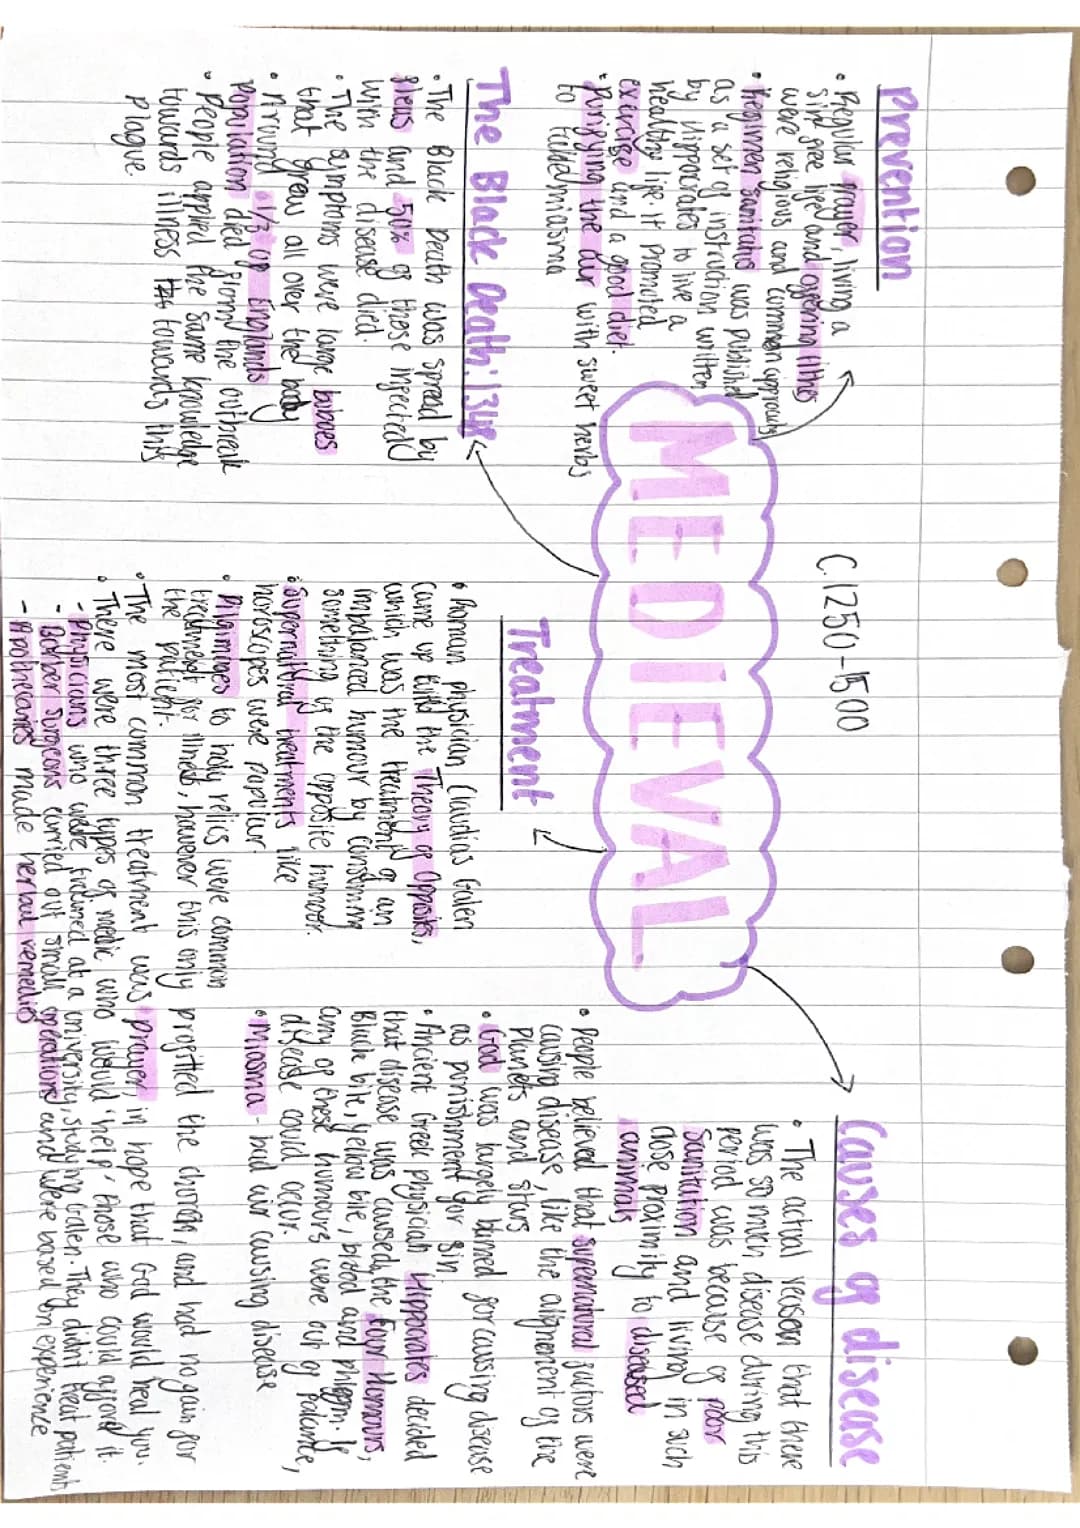 C.1250-1500
MEDIEVAL
Prevention
• Regular prayer, living a
sin free life and offering tithes
were religious and common approach
• Regimen sanitatis was published
as a set of instruction written
by Hippocrates to live a
healthy life. it promoted
exercise and a good diet.
• purifying the air with sweet herbs
to miasma
The Black Death: 1348
• The Black Death was spread by
fleas and 50% of those infected
with the disease died.
• The symptoms were large buboes
that grew all over the body
• Around 1/3 of Englands
population died from the outbreak
• People applied the same knowledge
towards illness towards this
plague.
Treatment
• Roman physician Claudius Galen
came up with the Theory of Opposites,
which was the treatment of an
imbalanced humour by consuming
something of the opposite humour.
• Supernatural treatments like
horoscopes were popular.
• Pilgrimages to holy relics were common
treatment for illness, however this only profitted the church, and had no gain for
the patient.
• The most common treatment was prayer, in hope that God would heal you.
• There were three types of medic who would 'help' those who could afford it.
- Physicians who were trained at a university, studying Galen. They didn't treat patients
- Barber surgeons carried out small operations and were based on experience
- Apothecaries made herbal remedies
Causes of disease
• The actual reason that there
was so much disease during this
period was because of poor
sanitation and living in such
close proximity to diseased
animals
• People believed that supernatural factors were
causing disease, like the alignment of the
planets and stars
• God was largely blamed for causing disease
as punishment for sin.
• Ancient Greek physician Hippocrates decided
that disease was caused by the Four Humours,
Black bile, yellow bile, blood and phlegm. If
any of these humours were out of balance,
disease could occur.
• Miasma - bad air causing disease